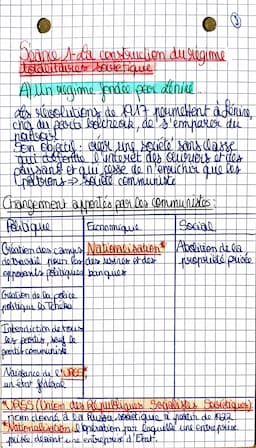 1
Séance 1 - La construction du régime
totalitaire soviétique
A) Un régime fondé par Lénine
Les révolutions de 1917 permettent à Lénine,
chef du parti bolchevik, de s'emparer du
pouvoir
Son objectif : créer une société sans classe
qui défende l'intérêt des ouvriers et des
paysans et qui cesse de n'enrichir que les
patrons => société communiste
Changement apportés par les communistes :
Politique Economique Social
Création des camps de travail pour les opposants politiques
Nationalisation* des usines et des banques
Abolition de la propriété privée
Création de la police politique la Tcheka
Interdiction de tous les partis, sauf le parti communiste
Naissance de l'URSS* un état fédéral
*URSS (Union des Républiques Socialistes Soviétiques)
nom donné à la Russie soviétique à partir de 1922
*Nationalisation : l'opération par laquelle une entreprise
privée devient une entreprise d'Etat.